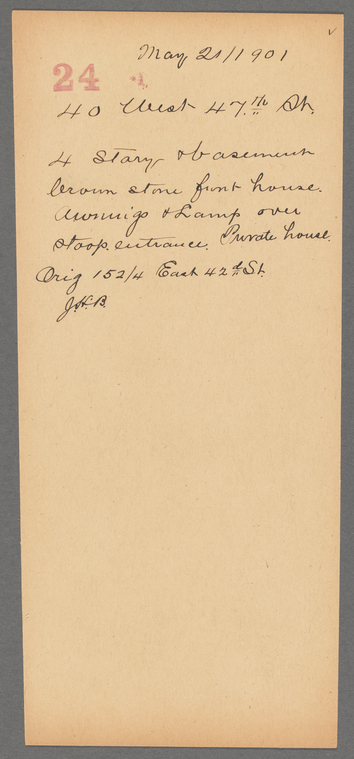 May 21/1901
24
40 West 47.th St.
4 Story & basement
brown stone front house.
Awnings & Lamp over
stoop entrance. Private house.
Orig 152/4 East 42d St.
J.H.B.